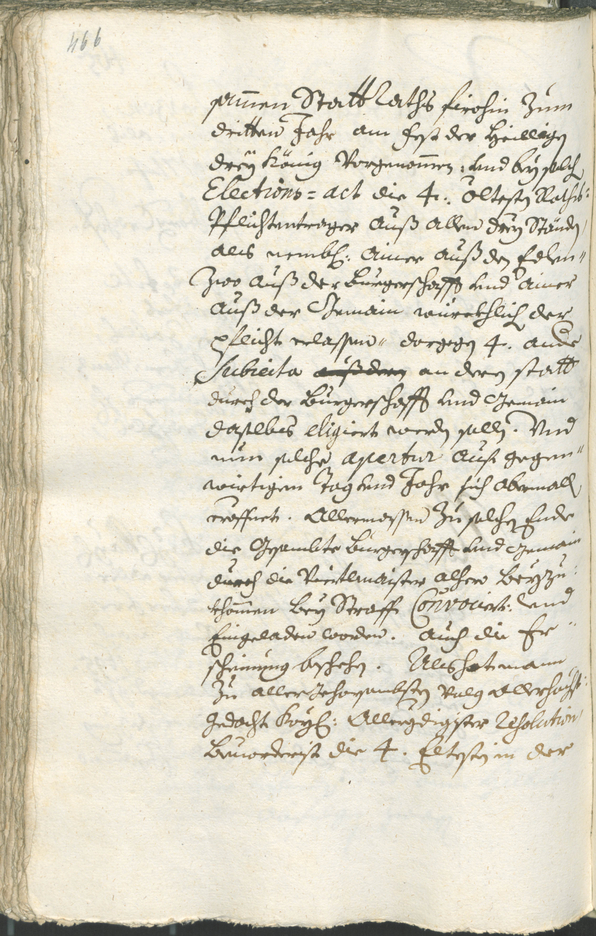 466
samen Statt Raths firohin Zum
dritten Jahr am fest der Heilligen
dreÿ König Vorgenommen: Und beÿ solch
Elections=act die 4: öltesten Raths=
Pflichtentrager Auß allen dreÿ Ständen
als nembl: ainer auß den Edlen
Zwo auß der Burgerschafft und ainer
auß der Gemain würckhlich der
Pflicht erlassen dargegen 4. andere
Subiecta an deren statt
durch die Burgerschafft und Gemain
daselbs eligiert werden solle. Und
nun solche apertur Auf gegen=
wirtigen Tag und Jahr sich abermall
eröffnet. Allermassen Zu solchen Ende
die Gesambte Burgerschafft und Gemain
durch die Viertlmaister alhero beÿzu=
khommen beÿ Straff Convociert: und
Eingeladen worden. Auch die Er=
scheinung beschehen. Als hat mann
Zu aller gehorsambsten volg allerhöchst=
gedacht Kaÿl: Allergdigister Resolution
Bevorderist die 4. Eltesten in der